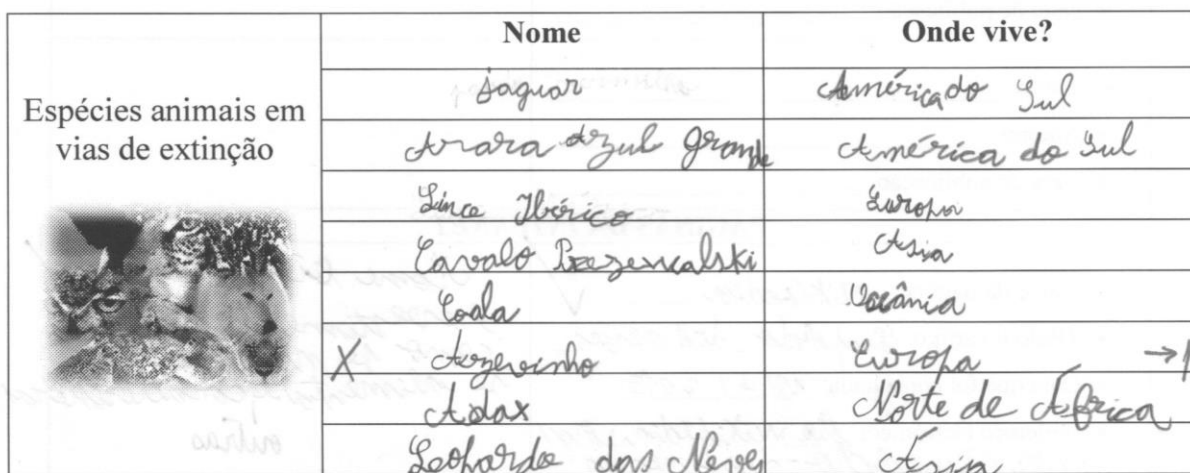 Nome Onde vive?
Espécies animais em
vias de extinção
Jaguar América do Sul
Arara Azul Grande América do Sul
Lince Ibérico Europa
Cavalo Ásia
Coala Oceânia
X Azevinho Europa →
Adax Norte de África
Leopardo das Neves Ásia